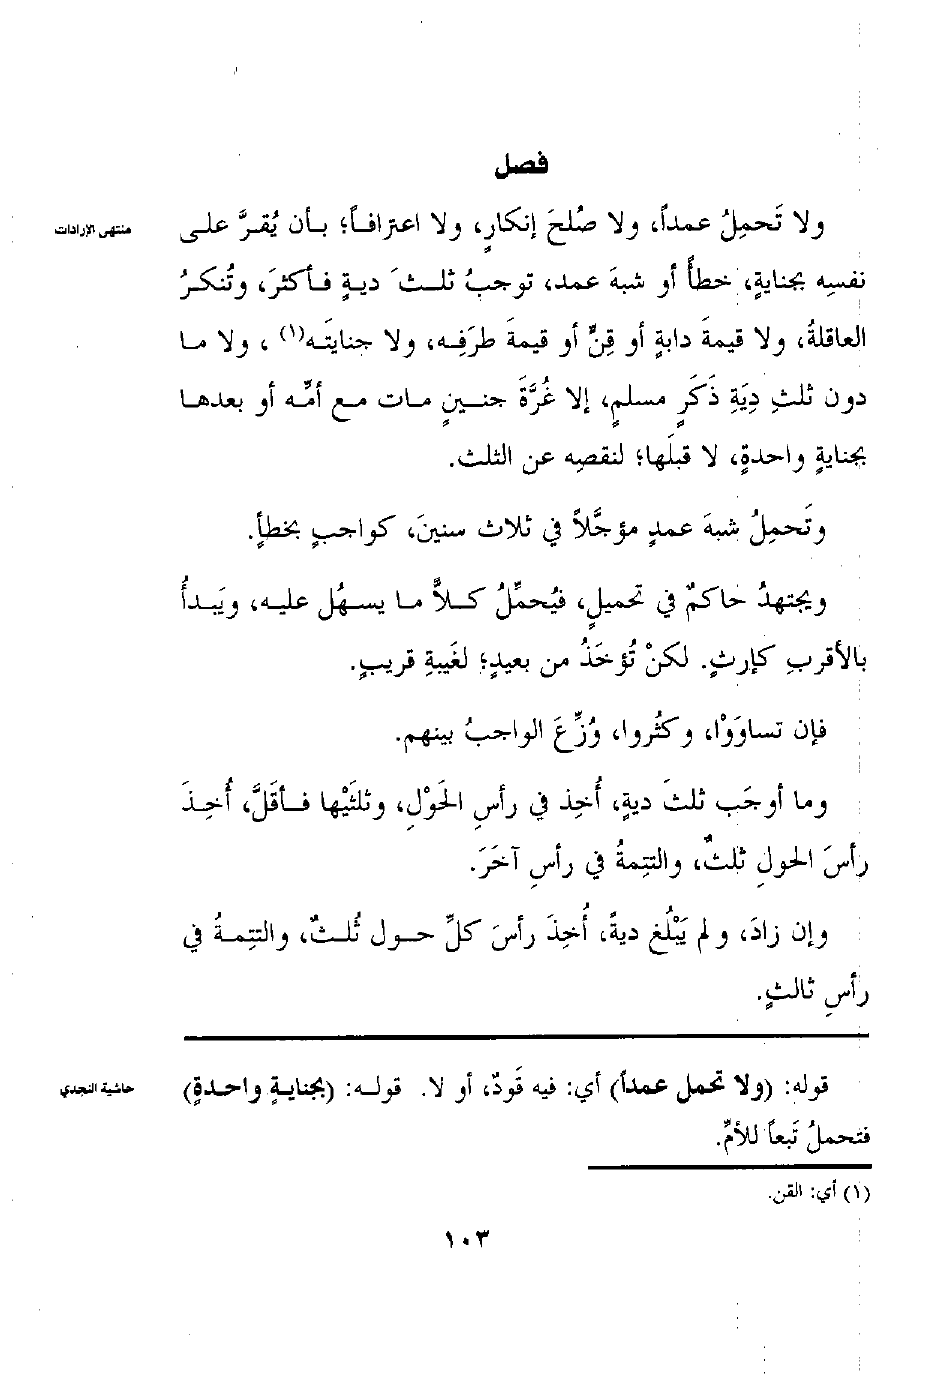 فصل
منتهى الإرادات
ولا تَحمِلُ عمداً، ولا صُلحَ إنكارٍ، ولا اعترافاً؛ بأن يُقرَّ على
نفسِه بجنايةٍ، خطأً أو شبهَ عمد، توجبُ ثلثَ ديةٍ فأكثرَ، وتُنكرُ
العاقلةُ، ولا قيمةَ دابةٍ أو قِنٍّ أو قيمةَ طرَفِه، ولا جنايتَه(١)، ولا ما
دون ثلثِ دِيَةِ ذَكَرٍ مسلمٍ، إلا غُرَّةَ جنينٍ مات مع أمِّه أو بعدها
بجنايةٍ واحدةٍ، لا قبلَها؛ لنقصِه عن الثلث.
وتَحمِلُ شبهَ عمدٍ مؤجَّلاً في ثلاث سنينَ، كواجبٍ بخطأٍ.
ويجتهدُ حاكمٌ في تحميلٍ، فيُحمِّلُ كلاًّ ما يسهُل عليه، ويَبدأُ
بالأقربِ كإرثٍ. لكنْ تُؤخَذُ من بعيدٍ؛ لغَيبةِ قريبٍ.
فإن تساوَوْا، وكثُروا، وُزِّعَ الواجبُ بينهم.
وما أوجَب ثلثَ ديةٍ، أُخِذ في رأسِ الحَوْلِ، وثلثَيْها فأقلَّ، أُخِذَ
رأسَ الحولِ ثلثٌ، والتتِمةُ في رأسِ آخَرَ.
وإن زادَ، ولم يَبْلُغ ديةً، أُخِذَ رأسَ كلِّ حول ثُلثٌ، والتتِمةُ في
رأسِ ثالثٍ.
حاشية النجدي
قوله: (ولا تحمل عمداً) أي: فيه قَودٌ، أو لا. قوله: (بجنايةٍ واحدةٍ)
فتحملُ تَبعاً للأمِّ.
(١) أي: القن.
١٠٣